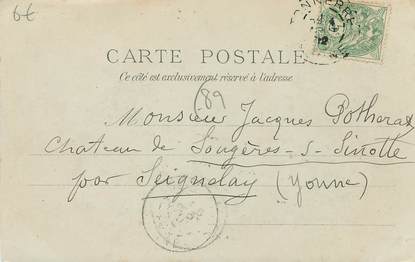 6€
TONNERRE
CARTE POSTALE
Ce côté est exclusivement réservé à l'adresse.
(89
Monsieur Jacques Potherat
Chateau de Sougères-s-Sinotte
par Seignelay (Yonne)